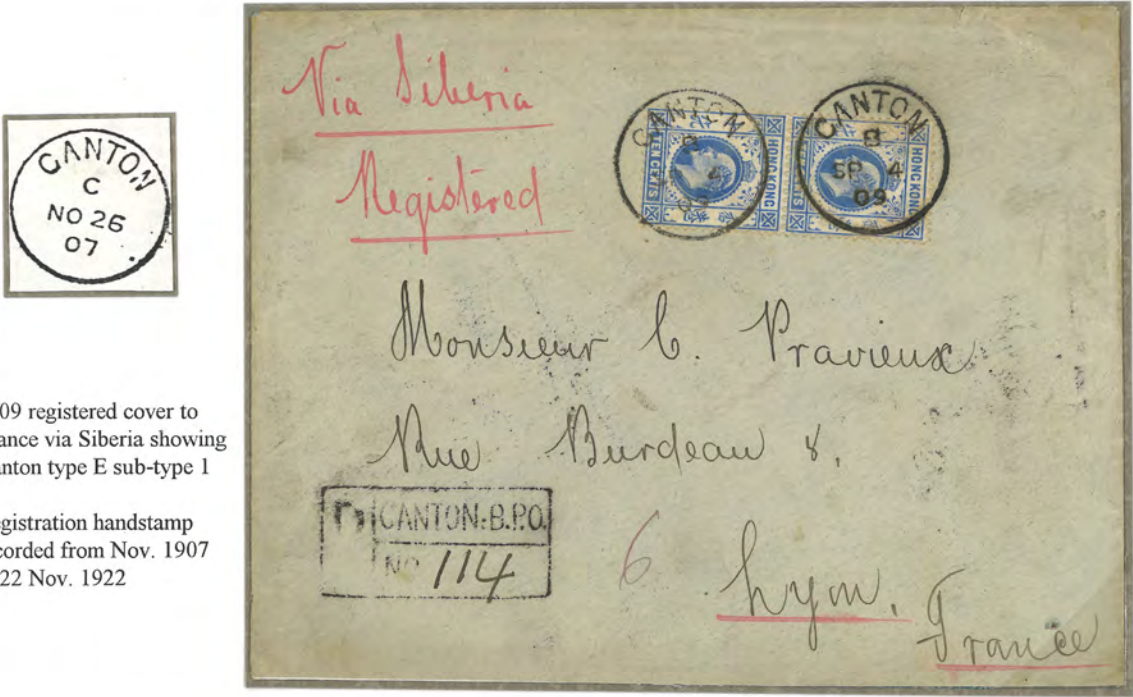 CANTON
C
NO 26
07
09 registered cover to
ance via Siberia showing
anton type E sub-type 1
egistration handstamp
corded from Nov. 1907
22 Nov. 1922
Via Siberia
Registered
CANTON
B
4
TEN CENTS
HONG KONG
CANTON
B
SP 4
09
HONG KONG
Monsieur C. Pravieux
Rue Burdeau 8,
R CANTON.B.P.O.
NO 114
6
Lyon,
France